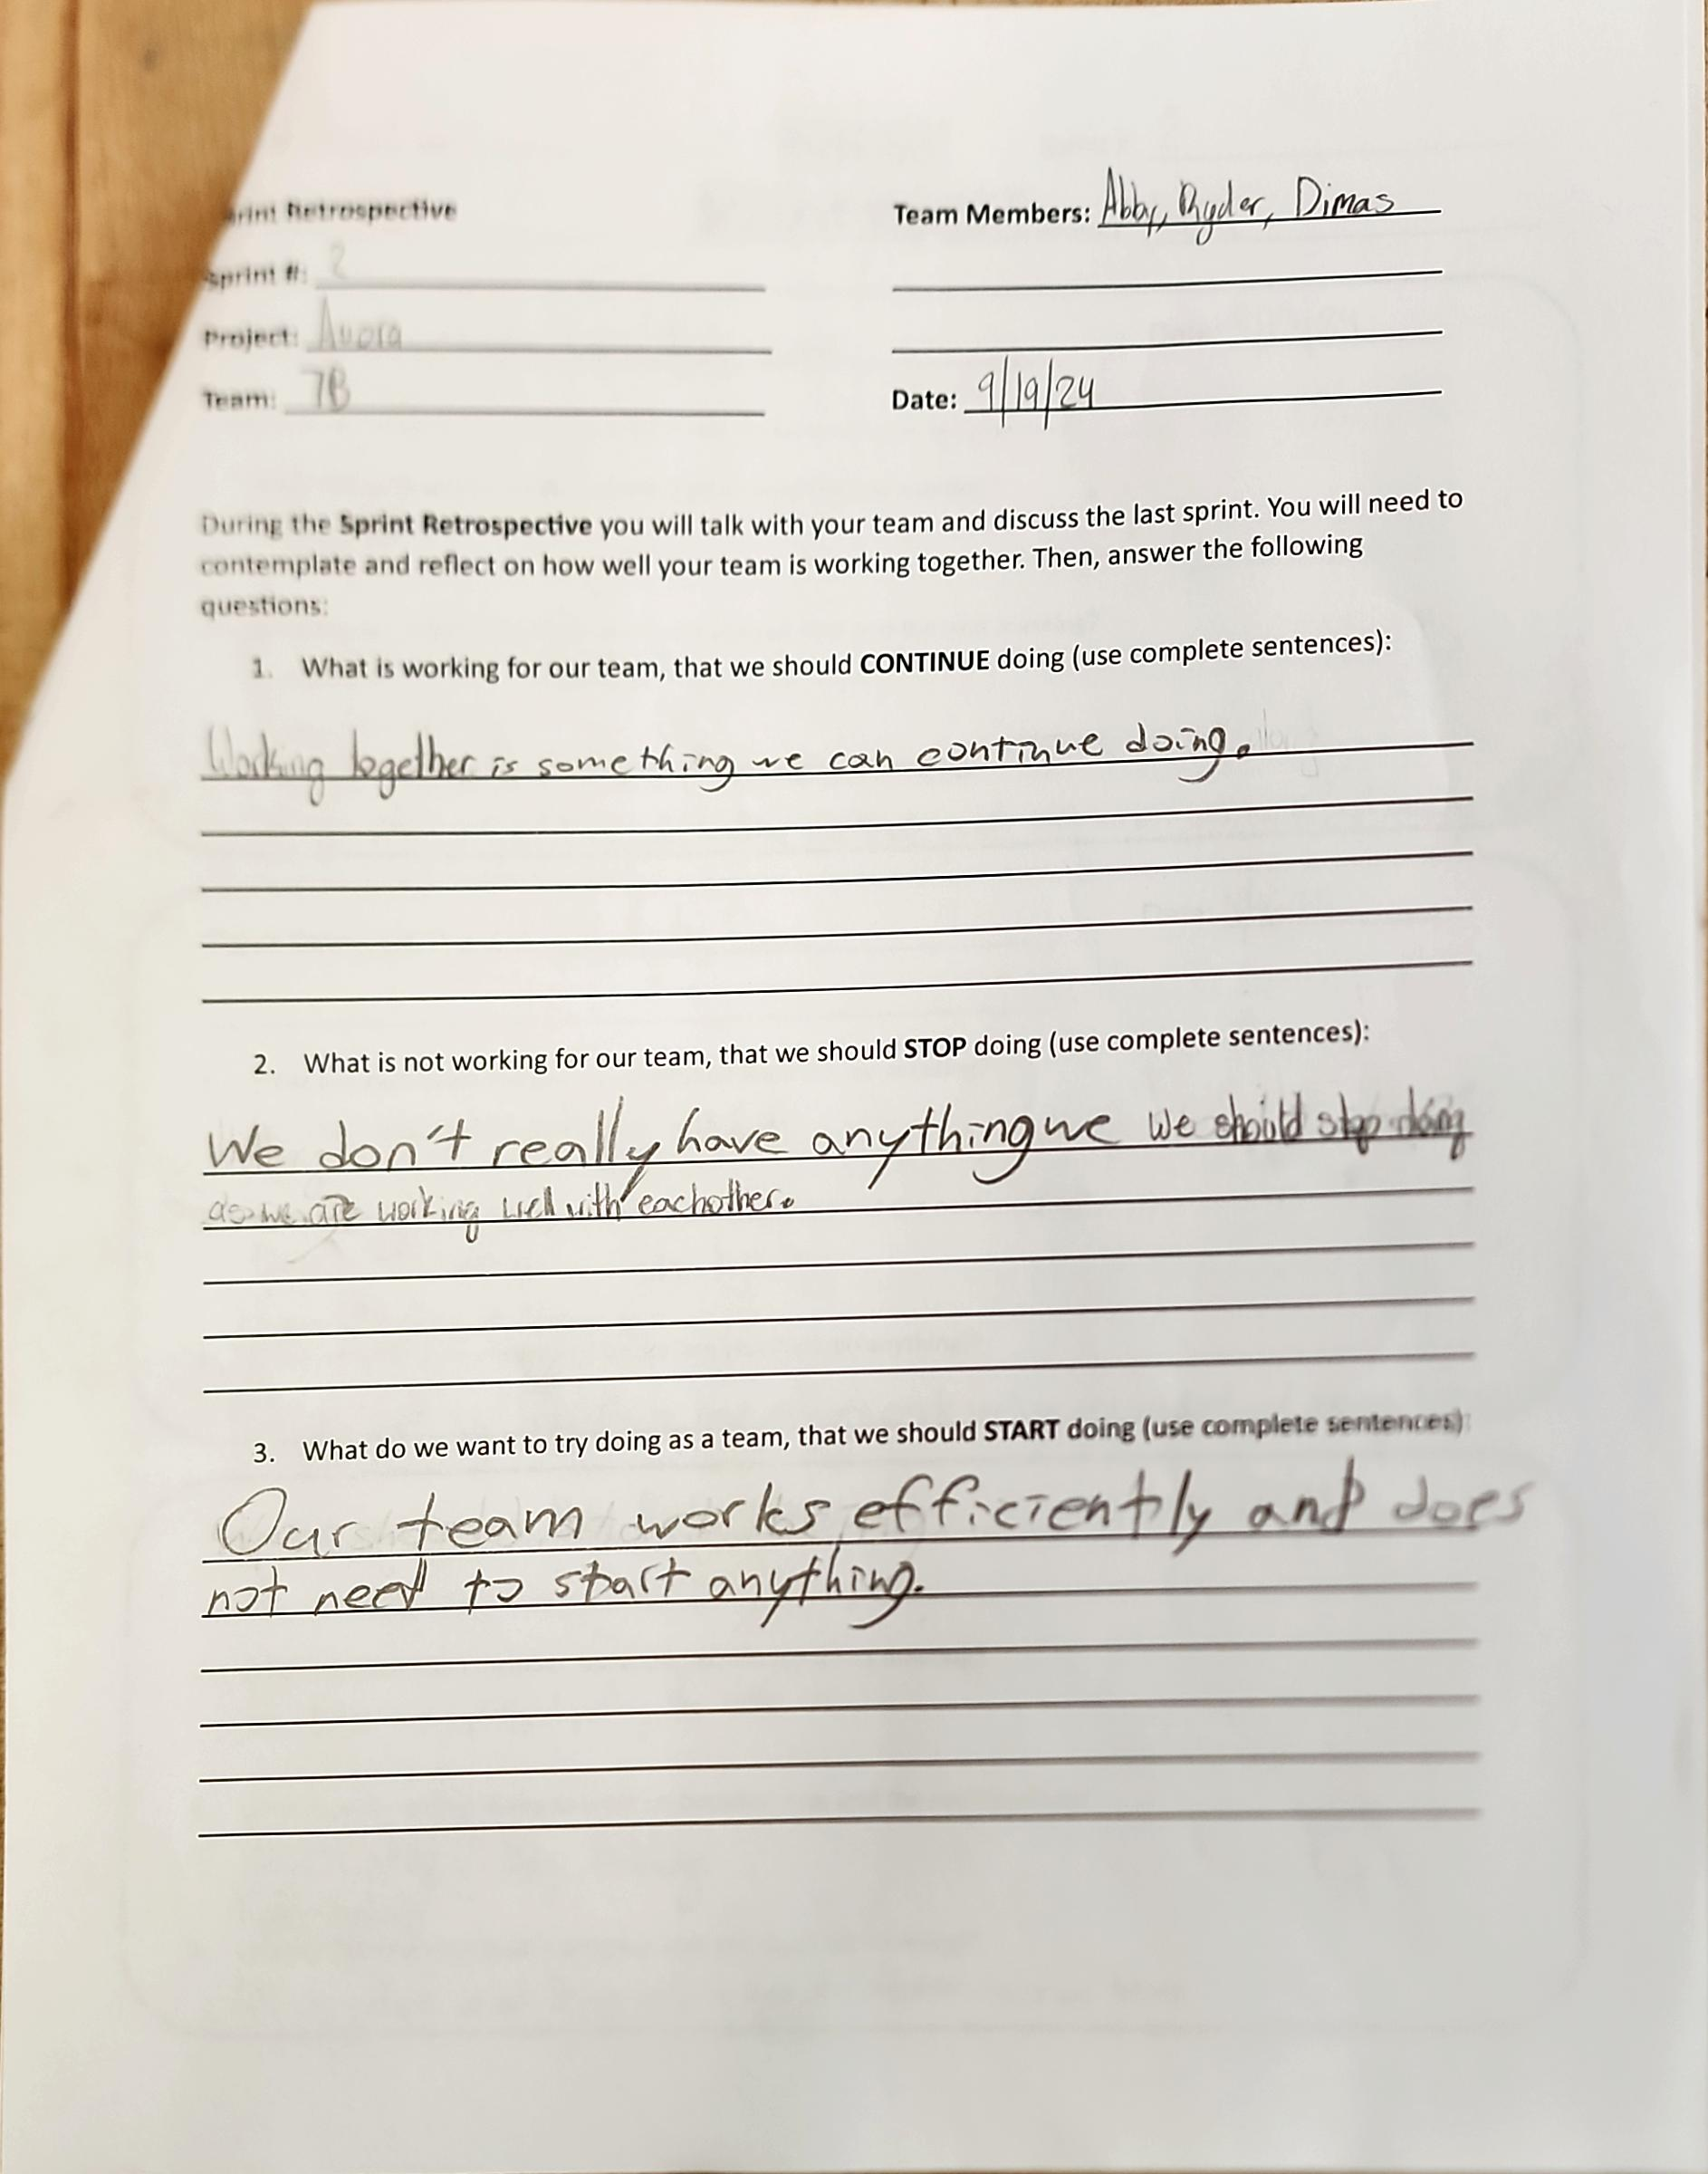 Sprint Retrospective
Team Members: Abby, Ryder, Dimas
Sprint #: 2
Project:
Team: 7B
Date: 9/19/24
During the Sprint Retrospective you will talk with your team and discuss the last sprint. You will need to
contemplate and reflect on how well your team is working together. Then, answer the following
questions:
1. What is working for our team, that we should CONTINUE doing (use complete sentences):
Working together is something we can continue doing.
2. What is not working for our team, that we should STOP doing (use complete sentences):
We don't really have anything we we should stop doing
as we are working well with eachother.
3. What do we want to try doing as a team, that we should START doing (use complete sentences):
Our team works efficiently and does
not need to start anything.